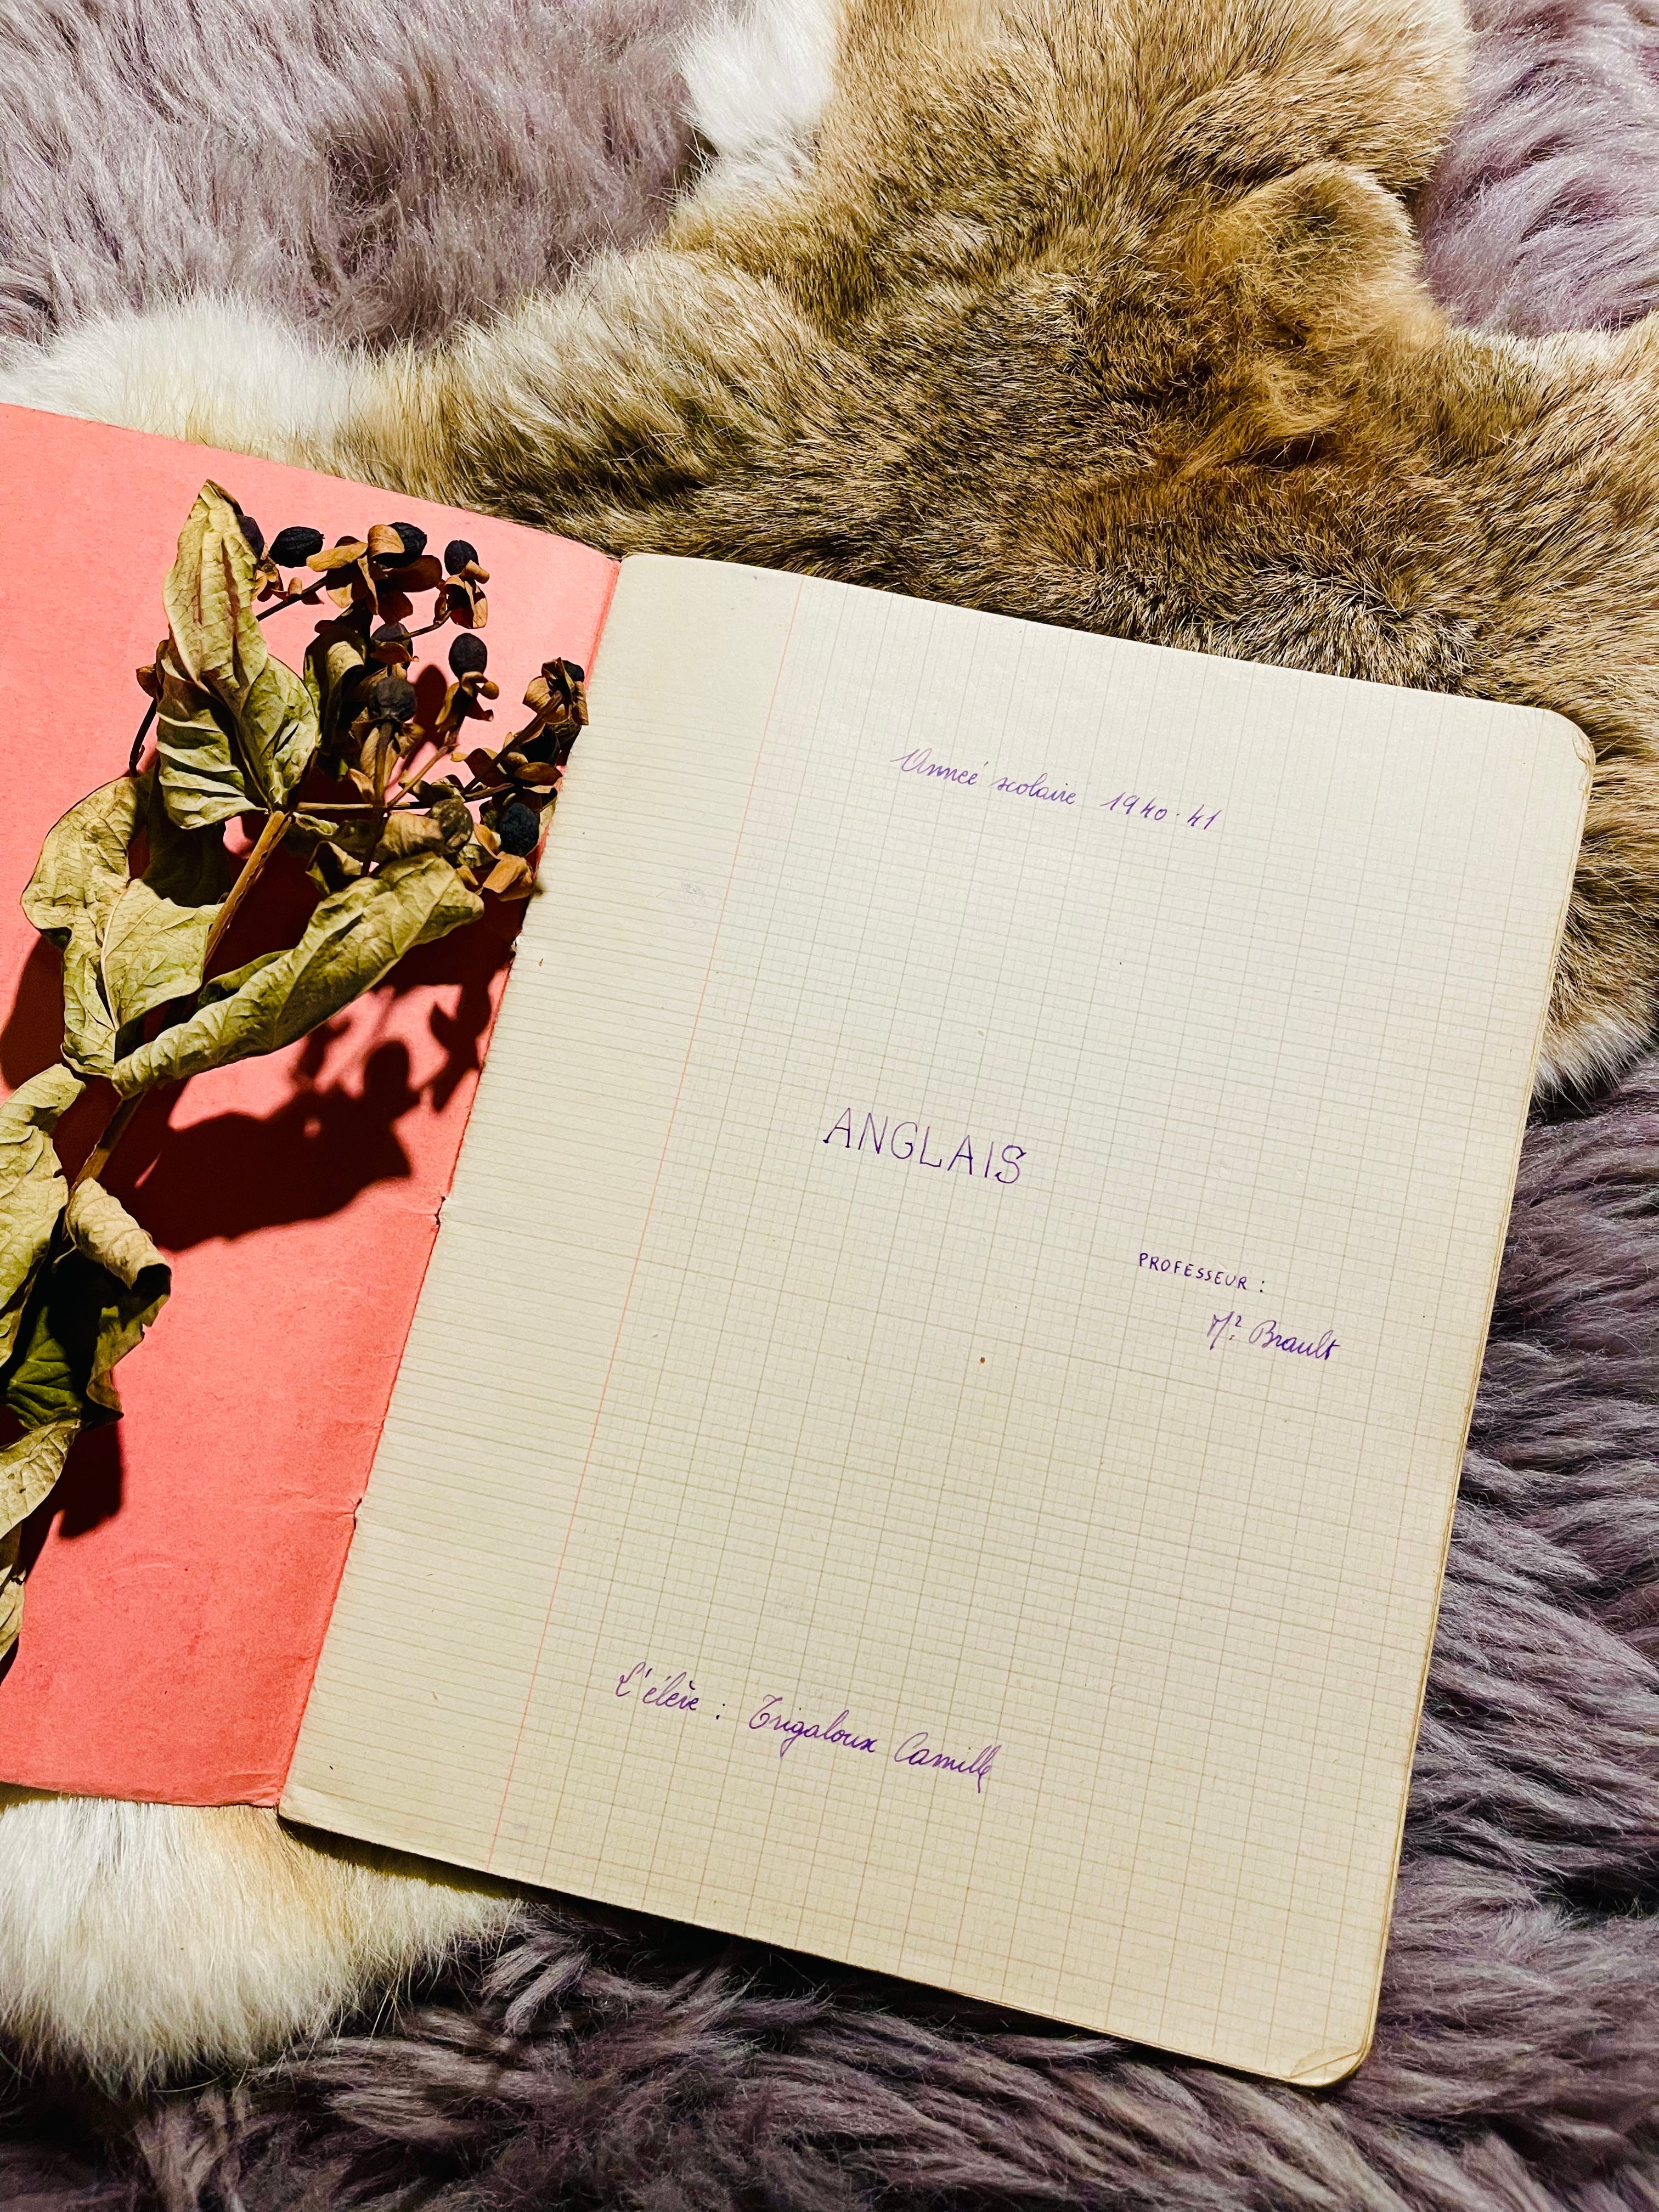 Anneé scolaire 1940-41
ANGLAIS
PROFESSEUR :
Mr Brault
L'élève : Trigaloux Camille